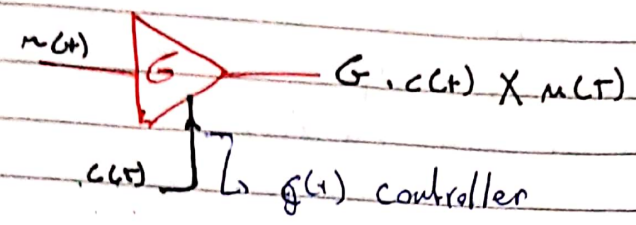 m(t) G G . c(t) X m(t)
c(t) g(t) controller